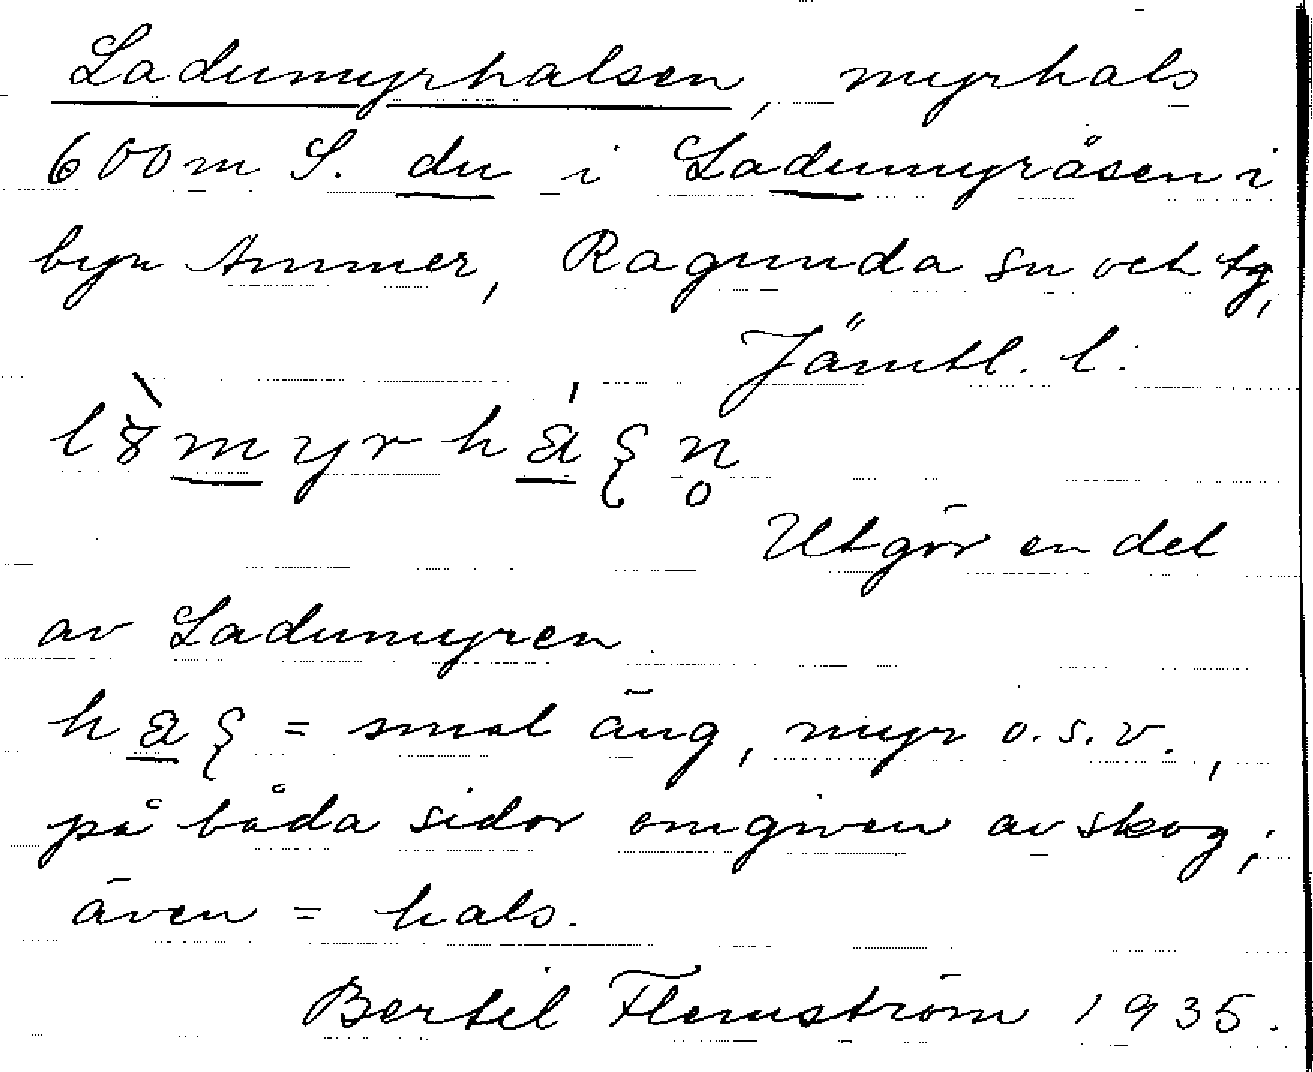 Ladumyrhalsen, myrhals
600 m S. du i Ladumyråsen i
byn Ammer, Ragunda sn och tg,
Jämtl. l.
Utgör en del
av Ladumyren.
= smal äng, myr o.s.v.,
på båda sidor omgiven av skog;
även = hals.
Bertil Flemström 1935.